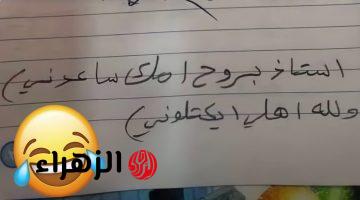 استاذ بروح امك ساعدني
ولله اهلي ايكتلوني
الزهراء